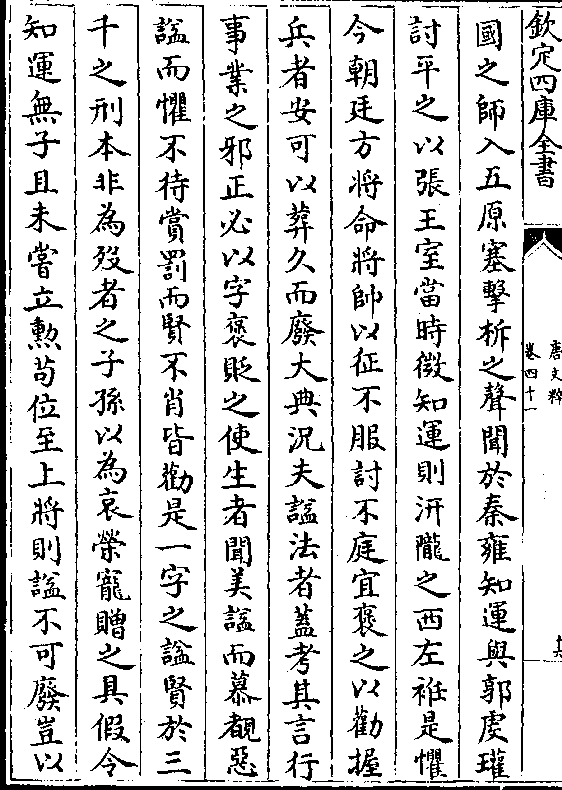 欽定四庫全書
唐文粹
卷四十一
國之師入五原塞擊柝之聲聞於秦雍知運與郭䖍瓘
討平之以張王室當時微知運則汧隴之西左袵是懼
今朝廷方將命將帥以征不服討不庭宜褒之以勸握
兵者安可以葬久而廢大典況夫諡法者蓋考其言行
事業之邪正必以字褒貶之使生者聞美諡而慕覩惡
諡而懼不待賞罰而賢不肖皆勸是一字之諡賢於三
千之刑本非為歿者之子孫以為哀榮寵贈之具假令
知運無子且未嘗立勲苟位至上將則諡不可廢豈以